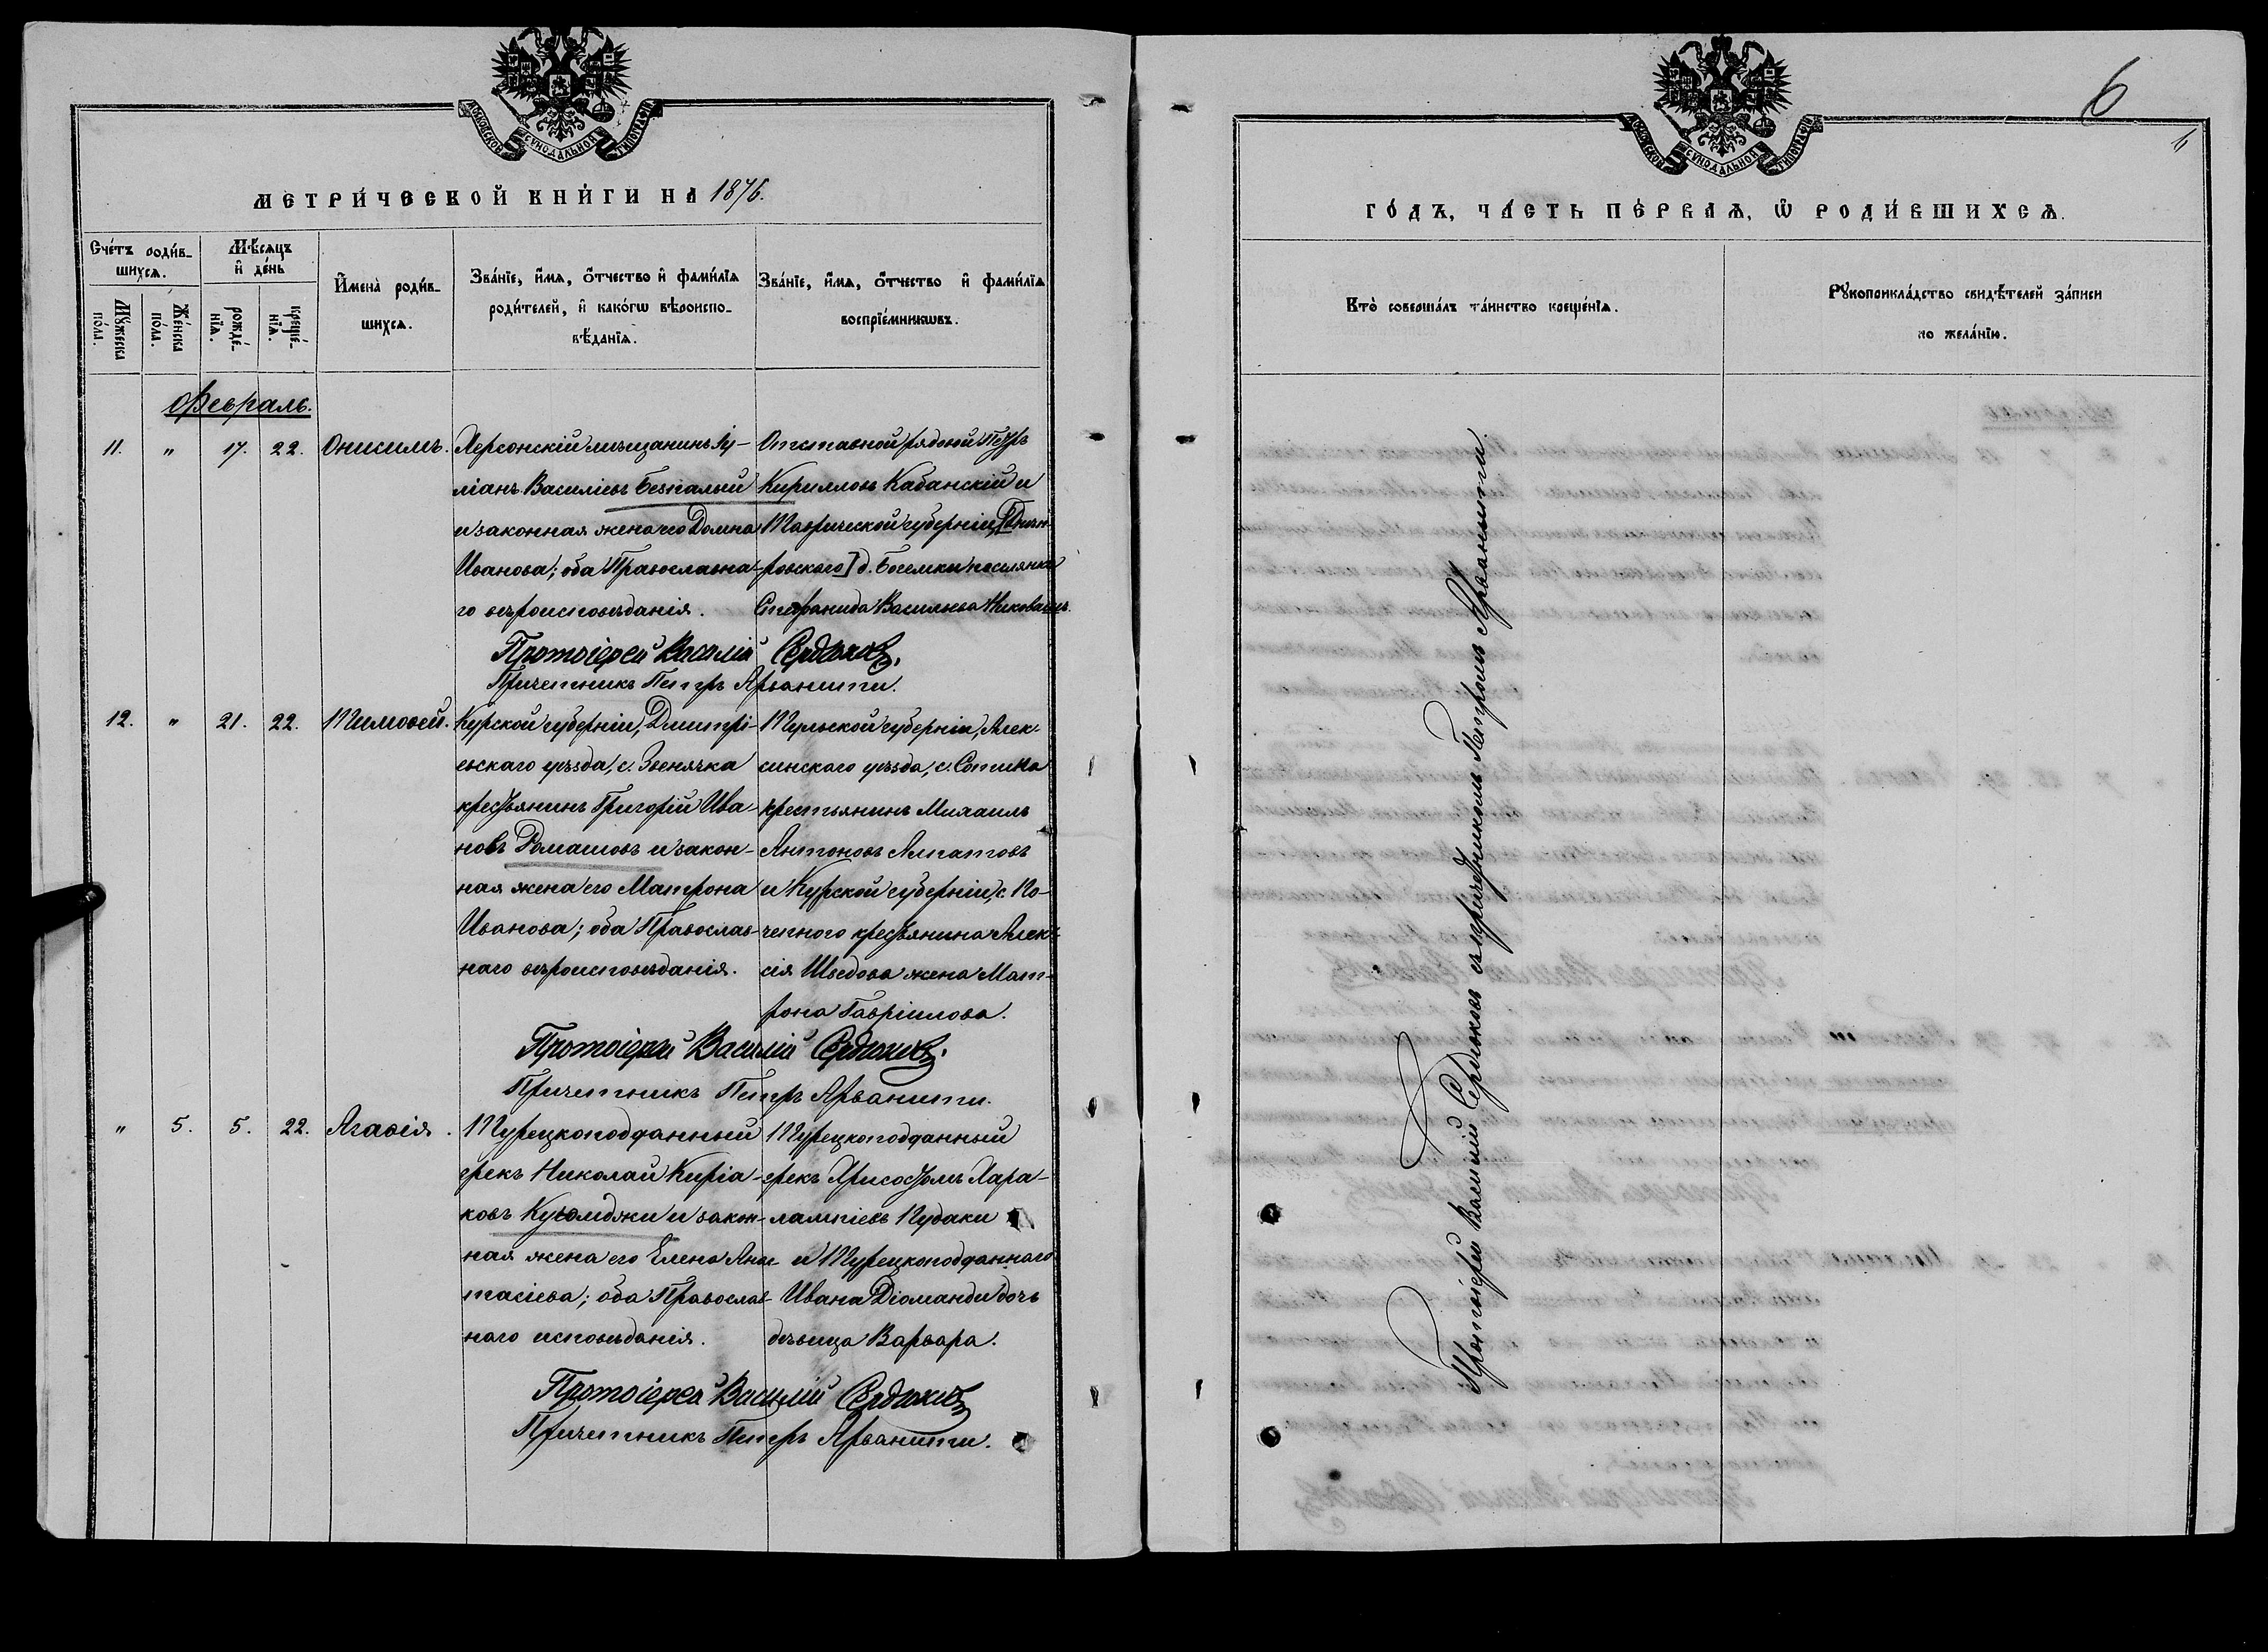 МОСКОВСКОЙ СѴНОДАЛЬНОЙ ТИПОГРАФІИ
МЕТРИ́ЧЕСКОЙ КНИ́ГИ НА 1876.
Сче́тъ роди́в-
шихсѧ.
Мѣ́сяцъ
и҆ де́нь
И҆мена̀ роди́в-
шихсѧ.
Зва́нїе, и҆́мѧ, ѻ҆́тчество и҆ фами́лїѧ
роди́телей, и҆ како́гѡ вѣроиспо-
вѣ́данїѧ.
Зва́нїе, и҆́мѧ, ѻ҆́тчество и҆ фами́лїѧ
воспрїе́мникѡвъ.
Мꙋ́жеска
по́ла.
Же́нска
по́ла.
рожде́-
нїѧ.
креще́-
нїѧ.
Февраль.
11. " 17. 22. Онисимъ.
Херсонскій мѣщанинъ Іу-
ліанъ Василіевъ Безпалый
и законная жена его Домна
Иванова; оба Православна-
го вѣроисповѣданія.
Отставной рядовой Петръ
Кирилловъ Кабанскій и
Таврической губерніи, [Днѣп-
ровскаго] д. поселянка
Стефанида Васильева
Протоіерей Василій Сердюковъ.
Причетникъ Петръ Арванити.
12. " 21. 22. Тимоѳей.
Курской губерніи, Дмитрі-
евскаго уѣзда, с. Звенячка
крестьянинъ Григорій Ива-
новъ Ромашовъ и закон-
ная жена его Матрона
Иванова; оба Православ-
наго вѣроисповѣданія.
Тульской губерніи, Алек-
синскаго уѣзда, с. Сотина
крестьянинъ Михаилъ
Антоновъ Алпатовъ
и Курской губерніи, с. По-
крестьянина Алек-
сія Шведова жена Мат-
рона Гавріилова.
Протоіерей Василій Сердюковъ.
Причетникъ Петръ Арванити.
" 5. 5. 22. Агаѳія.
Турецкоподданный
грекъ Николай Киріа-
ковъ Куюмджи и закон-
ная жена его Елена Анас-
тасіева; оба Православ-
наго исповѣданія.
Турецкоподданный
грекъ Хрисостомъ Хара-
лампіевъ Кудаки
и Турецкоподданнаго
Ивана Діоманди дочь
дѣвица Варвара.
Протоіерей Василій Сердюковъ
Причетникъ Петръ Арванити.
6
МОСКОВСКОЙ СѴНОДАЛЬНОЙ ТИПОГРАФІИ
ГО́ДЪ, ЧА́СТЬ ПЕ́РВАѦ, Ѡ҆ РОДИ́ВШИХСѦ.
Кто̀ соверша́лъ та́инство креще́нїѧ.
Рꙋкоприкла́дство свидѣ́телей за́писи
по жела́нїю.
Протоіерей Василій Сердюковъ съ причетникомъ Петромъ Арванити.